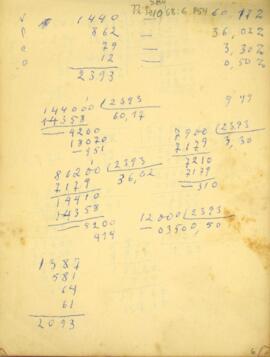 1440 — 60,17%
862 — 36,02%
79 — 3,30%
12 — 0,50%
2393
144000 2393
14358 60,17
4200
18070
951
7900 2393
7179 3,30
7210
7179
310
86200 2393
7179 36,02
14410
14358
5200
414
12000 2393
03500,50
1387
581
64
61
2093